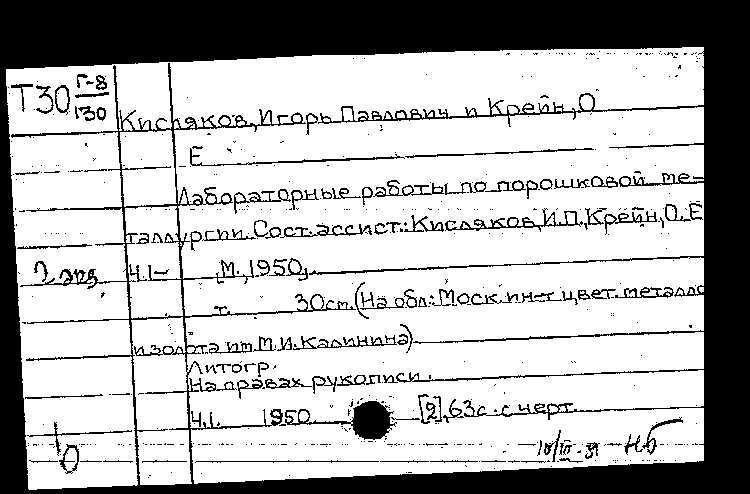 Т30 Г-8
130
Кисляков, Игорь Павлович и Крейн, О
Е
Лабораторные работы по порошковой ме-
таллургии. Сост. ассист.: Кисляков, И.П., Крейн, О.Е
2 экз. Ч.I- М., 1950.
т. 30см. (На обл.: Моск. ин-т цвет. металло
и золота им. М.И. Калинина)
Литогр.
На правах рукописи.
Ч.I. 1950. [2], 63с. с черт.
нб